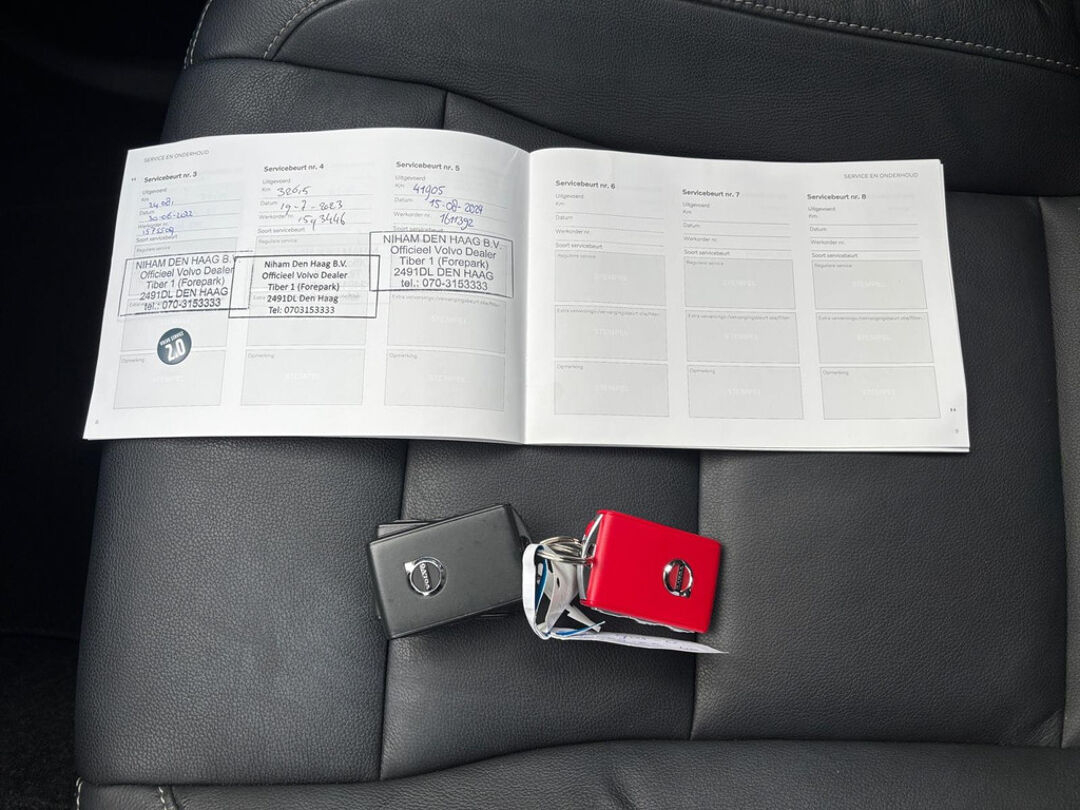 SERVICE EN ONDERHOUD
Servicebeurt nr. 3
Uitgevoerd
Km
24.081
Datum
30-06-2022
Werkorder nr.
Soort servicebeurt
NIHAM DEN HAAG B.V.
Officieel Volvo Dealer
Tiber 1 (Forepark)
2491DL DEN HAAG
tel.: 070-3153333
2.0
Opmerking
STEMPEL
Servicebeurt nr. 4
Uitgevoerd
Km
Datum
19-7-2023
Werkorder nr.
1593446
Soort servicebeurt
Reguliere service
Niham Den Haag B.V.
Officieel Volvo Dealer
Tiber 1 (Forepark)
2491DL Den Haag
Tel: 0703153333
Opmerking
STEMPEL
Servicebeurt nr. 5
Uitgevoerd
Km
41905
Datum
15-08-2024
Werkorder nr.
1611392
NIHAM DEN HAAG B.V.
Officieel Volvo Dealer
Tiber 1 (Forepark)
2491DL DEN HAAG
tel.: 070-3153333
STEMPEL
Opmerking
STEMPEL
SERVICE EN ONDERHOUD
Servicebeurt nr. 6
Uitgevoerd
Km
Datum
Werkorder nr.
Soort servicebeurt
Reguliere service
STEMPEL
STEMPEL
Opmerking
STEMPEL
Servicebeurt nr. 7
Uitgevoerd
Km
Datum
Werkorder nr.
Soort servicebeurt
Reguliere service
STEMPEL
STEMPEL
Opmerking
STEMPEL
Servicebeurt nr. 8
Uitgevoerd
Km
Datum
Werkorder nr.
Soort servicebeurt
Reguliere service
STEMPEL
STEMPEL
Opmerking
STEMPEL
8
9
VOLVO
VOLVO